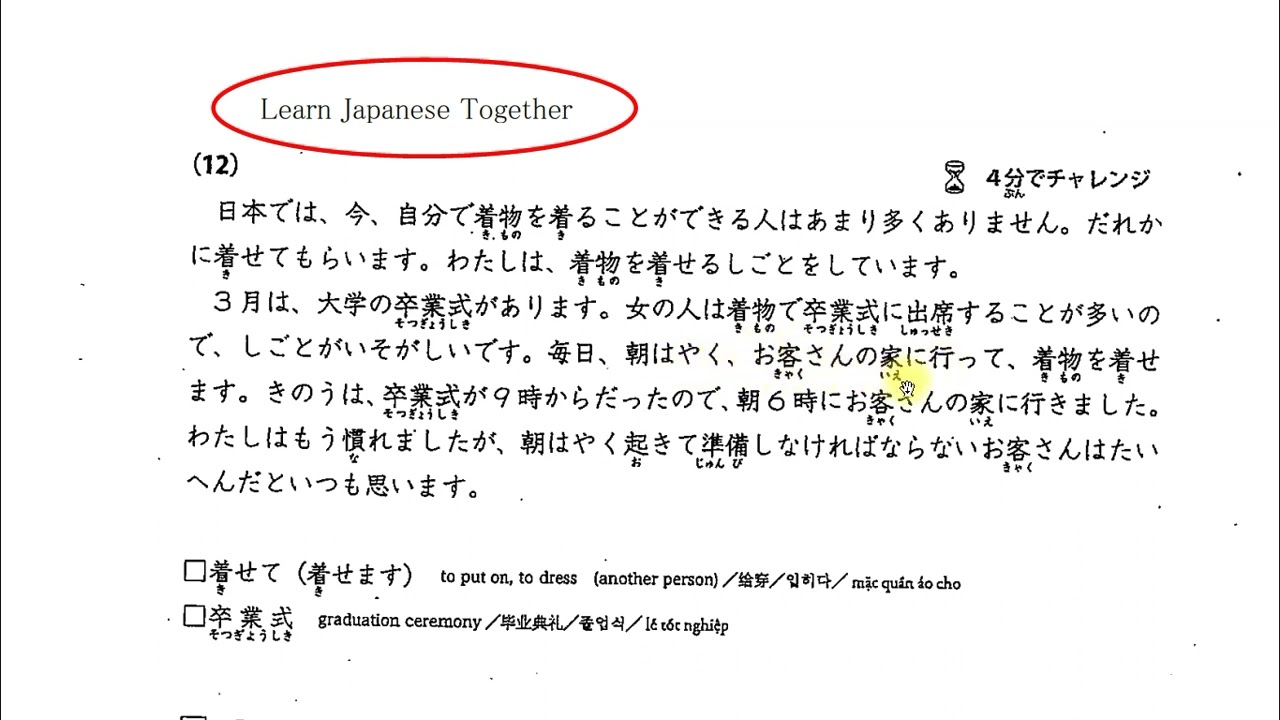 Learn Japanese Together
(12)
4分でチャレンジ
ぷん
日本では、今、自分で着物を着ることができる人はあまり多くありません。だれか
きもの き
に着せてもらいます。わたしは、着物を着せるしごとをしています。
き きもの き
3月は、大学の卒業式があります。女の人は着物で卒業式に出席することが多いの
そつぎょうしき きもの そつぎょうしき しゅっせき
で、しごとがいそがしいです。毎日、朝はやく、お客さんの家に行って、着物を着せ
きゃく いえ きもの き
ます。きのうは、卒業式が9時からだったので、朝6時にお客さんの家に行きました。
そつぎょうしき きゃく いえ
わたしはもう慣れましたが、朝はやく起きて準備しなければならないお客さんはたい
な お じゅんび きゃく
へんだといつも思います。
□着せて（着せます） to put on, to dress (another person)／给穿／입히다／mặc quần áo cho
き き
□卒業式 graduation ceremony／毕业典礼／졸업식／lễ tốt nghiệp
そつぎょうしき